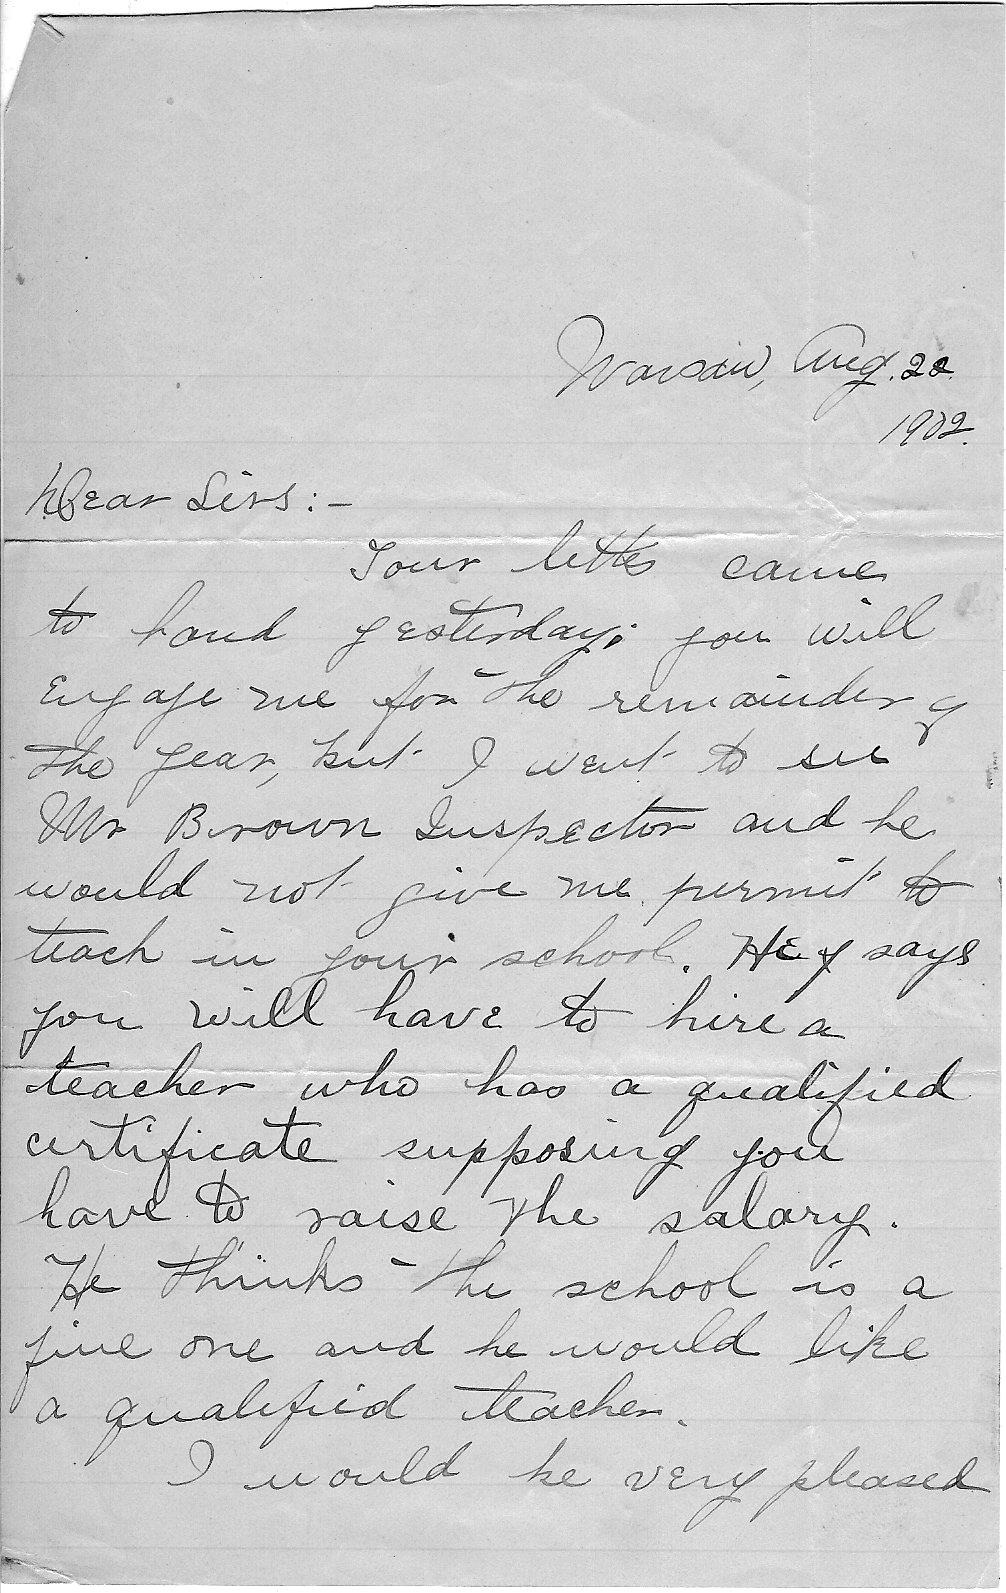 Warsaw, Aug. 22.
1902.
Dear Sirs:-
Your letter came
to hand yesterday; you will
engage me for the remainder of
the year, but I went to see
Mr Brown Inspector and he
would not give me permit to
teach in your school. He says
you will have to hire a
teacher who has a qualified
certificate supposing you
have to raise the salary.
He thinks the school is a
fine one and he would like
a qualified teacher.
I would be very pleased